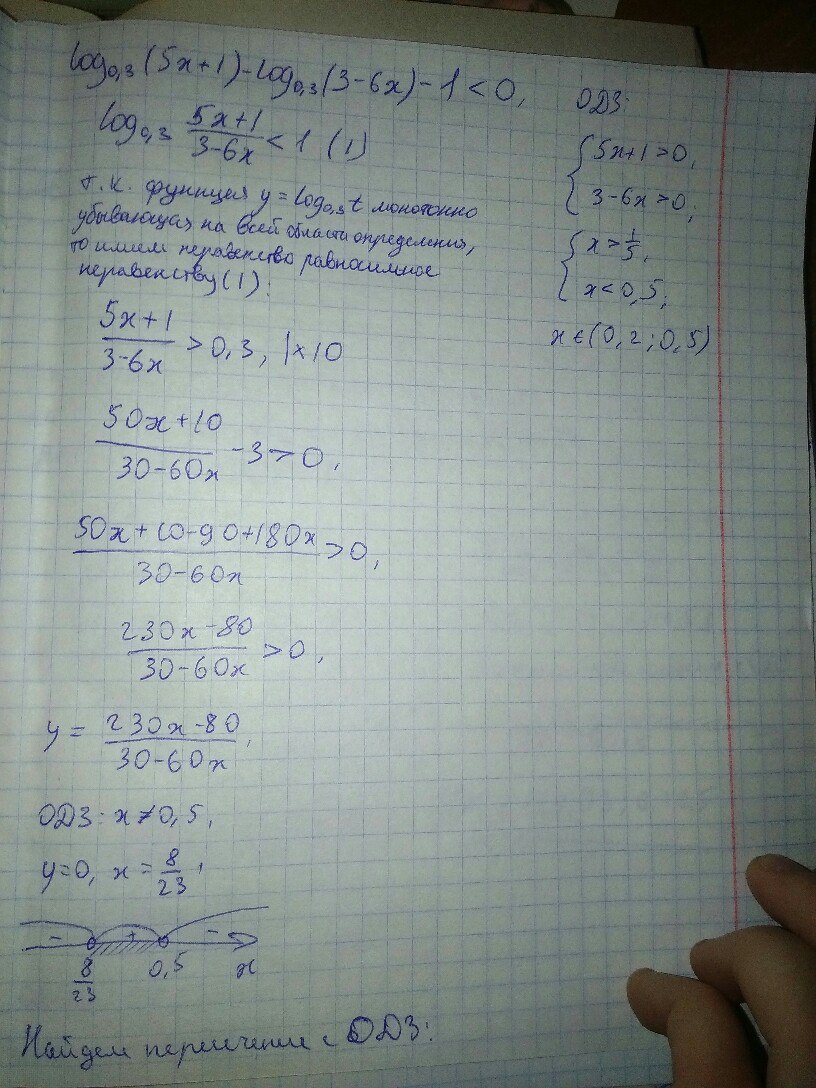 log₀,₃(5x+1)-log₀,₃(3-6x)-1<0,
log₀,₃ (5x+1)/(3-6x) < 1 (1)
т.к. функция y=log₀,₃t монотонно
убывающая на всей области определения,
то имеем неравенство равносильное
неравенству (1):
(5x+1)/(3-6x) > 0,3, |×10
(50x+10)/(30-60x) -3>0,
(50x+10-90+180x)/(30-60x) >0,
(230x-80)/(30-60x) >0,
y = (230x-80)/(30-60x),
ОДЗ: x≠0,5,
y=0, x=8/23,
- + -
8/23 0,5 x
Найдем пересечение с ОДЗ:
ОДЗ:
{5x+1>0,
3-6x>0;
{x>1/5,
x<0,5;
x∈(0,2;0,5)